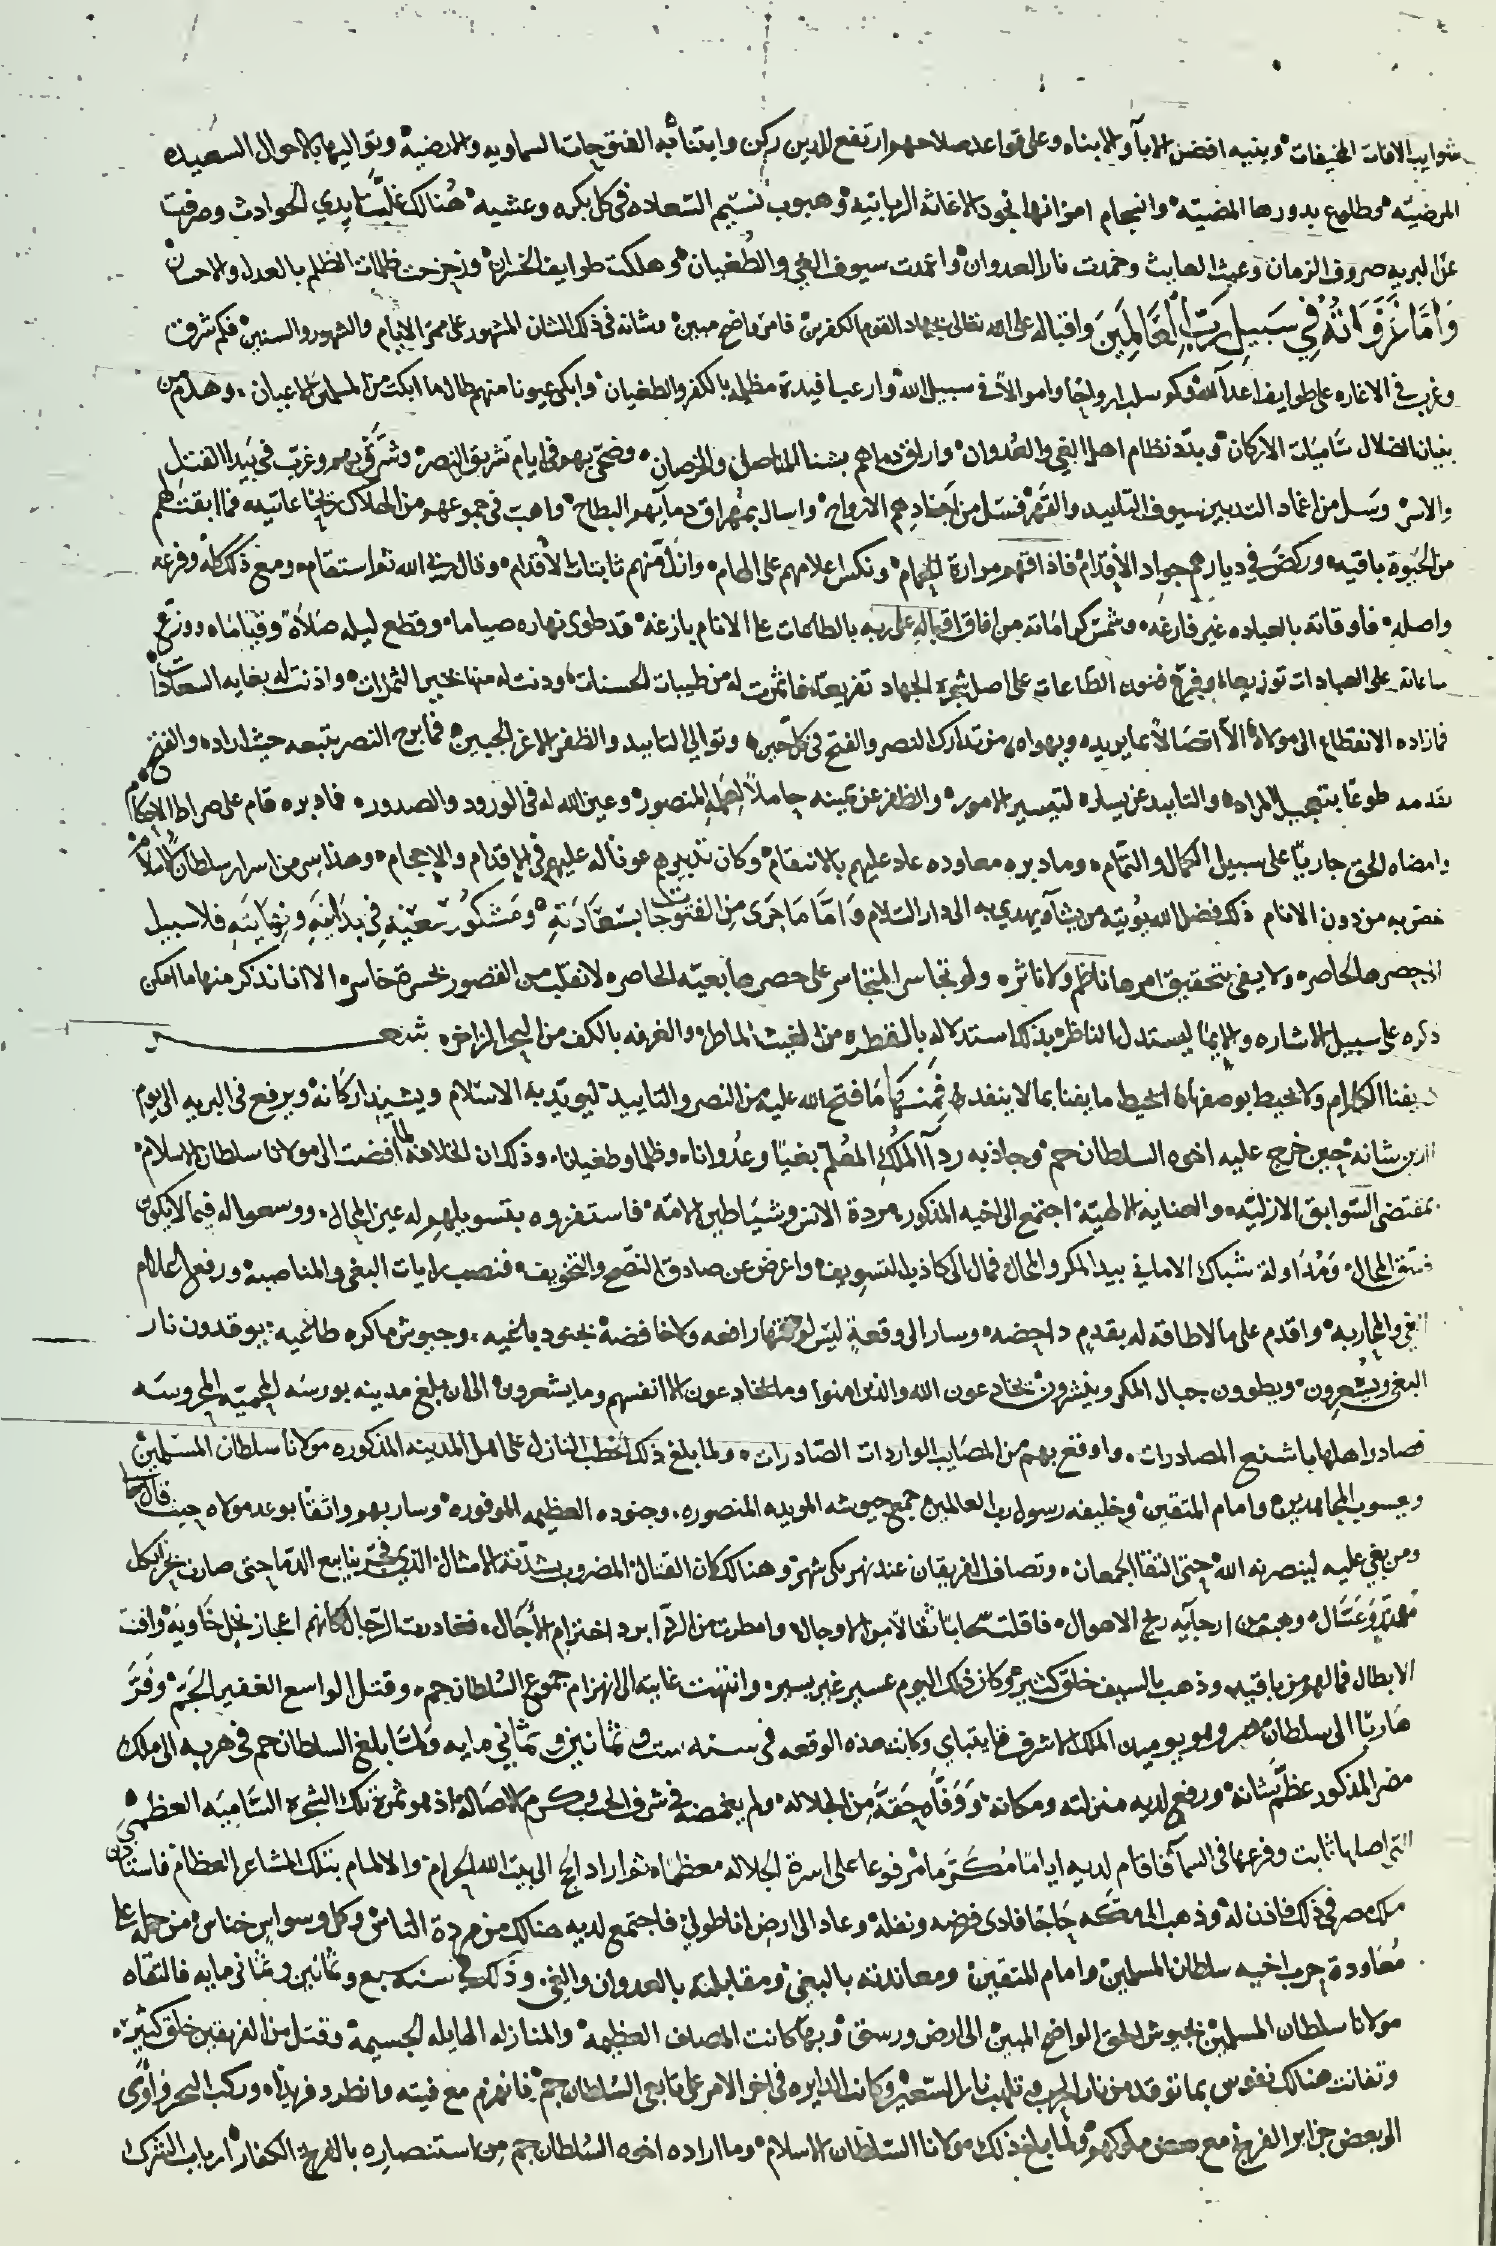 شوايب الافات المخيفات وبنيه افضل الابآ والابناه وعلى قواعد صلاحهم ارتفع للدين ركن وابتنا فيه الفتوحات السماويه والارضيه وتواليها بالاحوال السعيده
المرضيّه وطلوع بدورها المضيّه وانسجام امزانها بجود الاغاثه الربانيه وهبوب نسيم السّعاده في كل بكره وعشيه هُنالك غلّت ايدي الحوادث وصرفت
عن البريه صروف الزمان وعيث العايث وخمدت نار العدوان واغمدت سيوف البغي والطُغيان وهلكت طوايف الخسران وتزحزحت ظلمات الظلم بالعدل والاحسان
وَامّا غَزَوَاتُهُ فِي سَبِيلِ رَبِّ العَالَمِينَ واقباله على الله تعالى بجهاد القوم الكفرين فامر واضح مبين وشانه في ذلك الشان المشهور على ممرّ الايام والشهور والسنين فكم شرق
وغرب في الاغاره على طوايف اعدآ الله وكم سلب ارواحًا واموالاً في سبيل الله وارعب افيدة مظلمه بالكفر والطغيان وابكى عيونا منهم طال ما ابكت من المسلمين الاعيان وهدم من
بنيان الضلال سَاميات الاركان وبدّد نظام اهل البغي والعُدوان واراق دماهم بشبا المناصل والخرصان وضحّى بهم في ايام تشريق النصر وشرّق بهم وغرّب في بيدا القتل
والاسر وسَل من اغماد التدبير سيوف التاييد والقهر فسَل من اجسَادهم الارواح واسال بمُهراق دمآيهم البطاح واهب في جموعهم من الهلاك ريحًا عاتيه فما ابقت لهم
من الحَيوة باقيه وركض في ديارهم جواد الاِقدام فاذاقهم مرارة الحِمام ونكس اعلامهم على الهام وازلّ منهم ثابتات الاَقدام وقال ربي الله ثم استقام ومع ذلك كلّه وفرعه
واصله فاوقاته بالعباده غير فارغه وشمس كراماته من افاق اقباله على ربه بالطاعات على الانام بازغه قد طوى نهاره صياما وقطع ليله صَلاَة وقيامًا ووزّع
ساعاته على العبادات توزيعا وفرّع فنون الطّاعات على اصل شجرة الجهاد تفريعًا فاثمرت له من طيبات الحسنات ودنت له منها بخير الثمرات واذنت له بغايه السعادات
فما زاده الانقطاع الى مولاه الاّ اتصَالاً بما يريده ويهواه من تدارك النصر والفتح في كل حين وتوالي التاييد والظفر الاغر الجبين فما برح النصر يتبعه حيث اراده والفتح
يقدمه طوعًا بتعجيل المراد والتاييد عن يساره لتيسير الامور والظفر عن يمينه حاملاً لِعلمهِ المنصور وعين الله له في الورود والصدور فما دبره قام على صراط الاِحكام
وامضاه الحق جاريًا على سبيل الكمال والتمّام وما دبره معاوده عاد عليهم بالانتقام وكان تدبيرهم عونًا له عليهم في الاِقدام والاِحجام وهذا سر من اسرار سلطان الاسلام
خصّ به من دون الانام ذلك فضل الله يؤتيه من يشآ ويهدي به الى دار السّلام وَامّا مَا جَرَى مِن الفتوحَات بسَعَادَتهِ ومَشكُور سَعيِهِ فِي بدَايَتهِ ونِهايَتهِ فلا سبيل
الى حصرها لحاصره ولا يفي بتحقيق امرها ناظم ولا ناثره ولو تجاسر المتجاسر على حصرها بعيّه الحاصره لانقلب من القصور بحسرة خاسره الا انا نذكر منها ما امكن
ذكره على سبيل الاشاره والايما ليستدل الناظره بذلك استدلاله بالقطره من الغيث الماطر والغرفه بالكف من البحر الزاخره شعـــر
يفنا الكلام ولا يحيط بوصفها ا يحيط ما يفنا بما لا ينفد فمنـها مَا فتح الله عليه من النصر والتاييد ليويّد به الاسّلام ويشيّد اركانه ويرفع في البريه الى يوم
الدين شانه حين خرج عليه اخوه السلطان جم وجاذبه ردآ المُلك المُعلم بغيًا وعُدوانا وظلما وطغيانا وذلك ان الخلافة لما افضت الى مولانا سلطان الاسلام
بمقتضى السّوابق الازليّه والعنايه الالهيّه اجتمع الى اخيه المذكور مردة الانس وشيَاطين الامّه فاستفزوه بتسويلهم له عين المحال ووسعوا له فيما لا يكون
ضيّق المجال ومُدَاولة شباك الاماني بيد المكر والمحال فمال الى اكاذيب التسويف واعرض عن صادق النّصح والتخويف فنصب رايات البغي والمناصبه ورفع اعلام
البغي والمحاربه واقدم على ما لا طاقه له بقدمٍ داحضه وسار الى وقعةٍ ليس لوقعتها رافعه ولا خافضة بجنود باغيه وجيوش ماكره طاغيه يوقدون نار
البغي ويُسْعِرون ويطوون حبال المكر وينشرون يخادعون الله والذين امنوا وما يخادعون الا انفسهم وما يشعرون الى ان بلغ مدينه بورسَه المحميّه المحروسَه
فصادر اهلها باشنع المصادرات واوقع بهم من المصَايب الواردات الصّادرات ولما بلغ ذلك الخطب النازل على اهل المدينه المذكوره مولانا سلطان المسلمين
ويعسوب المجاهدين وامام المتقين وخليفه رسول رب العالمين جمع جيوشه المويده المنصوره وجنوده العظيمه الموفوره وسار بهم واثقًا بوعد مولاه حيث قال
ومن بغي عليه لينصرنه الله حتى التقا الجمعان وتصاف الفريقان عند نهر يكى شهر وهنالك كان القتال المضروب بشدّته الامثال الذي فجّر ينابيع الدّما حتى صارت بحرًا بكل
مُهنّدٍ وعَسّال وهبت من ارجآيه ريح الاهوال فاقلت سحابًا ثقالاً من الاوجال وامطرت من الرّدا برد اخترام الاُجال فغادرت الرّجال كانهم اعجاز نخل خَاويَه وافنت
الابطال فما لهم من باقيه وذهب بالسيف خلق كثير وكان ذلك اليوم عسير غير يسير وانتهت غايته الى انهزام جموع السُلطان جم وقتل الواسع الغفير الجَم وفَرّ
هَاربًا الى سلطان مصر وهو يوميذ الملك الاشرف قايتباي وكانت هذه الوقعه في سنه ست وثمانين وثماني مايه ولمّا بلغ السلطان جم في هربه الى ملك
مصر المذكور عظّم شانه ورفع لديه منزلته ومكانه وَوَفّاه حقّه مِن الجلاله ولم يغمضه في شرف الحسب وكرم الاصَاله اذ هو ثمرة تلك الشجره السّاميه العظمى
التي اصلها ثابت وفرعها في السمآ فاقام لديه ايامًا مُكَرّمًا مرفوعا على اسرة الجلاله معظمًا ثم اراد الحج الى بيت الله الحرام والالمام بتلك المشاعر العظام فاستاذن
ملك مصر في ذلك فاذن له وذهب الى مكّه حَاجّا فادى فرضه ونفله وعاد الى ارض اناطولي فاجتمع لديه هنالك من مردة الناس وكل وسواس خناس من حمله على
مُعَاودة حرب اخيه سلطان المسلمين وامام المتقين ومعاندته بالبغي ومقابلته بالعدوان والبغي وذلك في سنه سبع وثمانين وثماني مايه فالتقاه
مولانا سلطان المسلمين بجيوش الحق الواضح المبين الى ارض ورسق وبها كانت المصاف العظيمه والمنازله الهايله الجسيمه وقتل من الفريقين خلق كثير
وتفانت هنالك نفوس بما توقد من نار الحرب وتلهب نار السّعير وكانت الدايره في اخر الامر على تابعي السُلطان جم فانهزم مع فيته وانطرد فريدًا وركب البحر وآوى
الى بعض جزاير الفرنج مع بعض ملوكهم ولما بلغ ذلك مولانا السلطان الاسلام وما اراده اخوه السُلطان جم من استنصاره بالفرنج الكفار ارباب الشرك